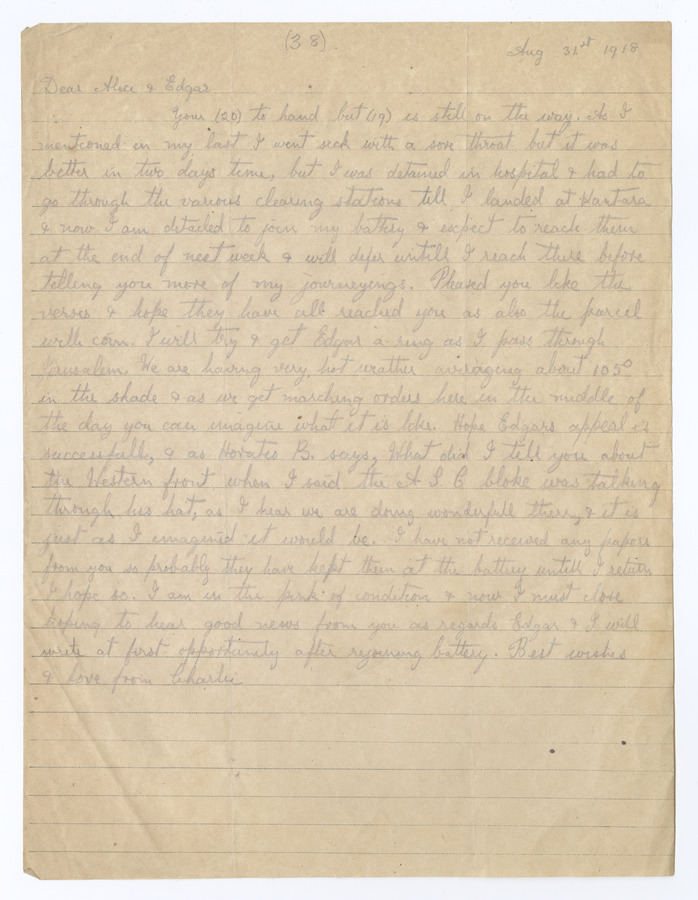 (38)
Aug 31st 1918
Dear Alice & Edgar
Your (20) to hand but (19) is still on the way. As I
mentioned in my last I went seek with a sore throat but it was
better in two days time, but I was detained in hospital & had to
go through the various clearing stations till I landed at Kantara
& now I am detailed to join my battery & expect to reach them
at the end of next week & will defer untill I reach there before
telling you more of my journeyings. Pleased you like the
verses & hope they have all reached you as also the parcel
with coin. I will try & get Edgar a ring as I pass through
Jerusalem. We are having very hot weather averaging about 105°
in the shade & as we get marching orders here in the middle of
the day you can imagine what it is like. Hope Edgars appeal is
successfull, & as Horatio B. says, What did I tell you about
the Western front when I said the A S C bloke was talking
through his hat, as I hear we are doing wonderfull there, & it is
just as I imagined it would be. I have not received any papers
from you so probably they have kept them at the battery untill I return
I hope so. I am in the pink of condition & now I must close
hoping to hear good news from you as regards Edgar & I will
write at first opportunity after rejoining battery. Best wishes
& love from Charlie